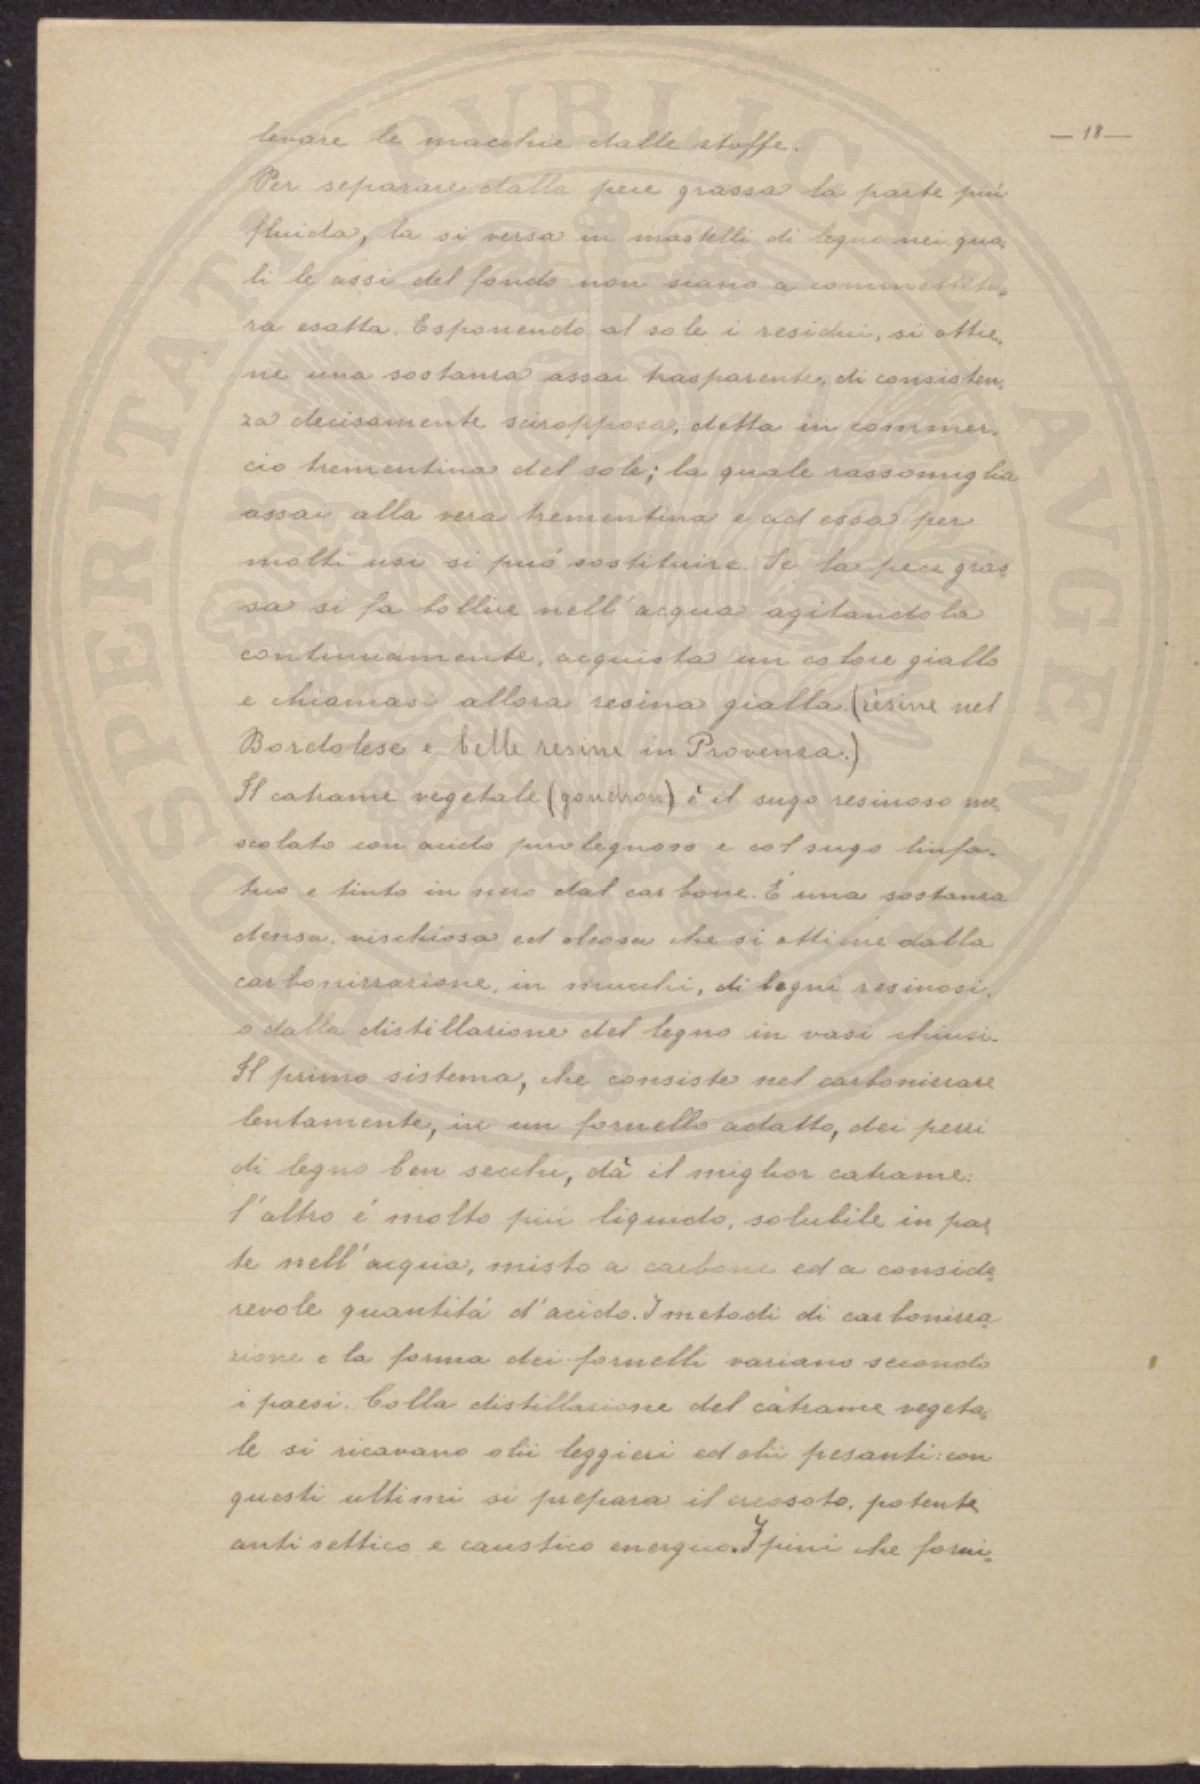 — 18 —
levare le macchie dalle stoffe.
Per separare dalla pece grassa la parte più
fluida, la si versa in mastelli di legno nei qua-
li le assi del fondo non siano a commettitu-
ra esatta. Esponendo al sole i residui, si ottie-
ne una sostanza assai trasparente, di consisten-
za decisamente sciropposa, detta in commer-
cio trementina del sole; la quale rassomiglia
assai alla vera trementina e ad essa per
molti usi si può sostituire. Se la pece gras-
sa si fa bollire nell'acqua agitandola
continuamente, acquista un colore giallo
e chiamasi allora resina gialla (résine nel
Bordolese e belle resine in Provenza.)
Il catrame vegetale (goudron) è il sugo resinoso me-
scolato con acido pirolegnoso e col sugo linfa-
tico e tinto in nero dal carbone. È una sostanza
densa, vischiosa ed oleosa che si ottiene dalla
carbonizzazione, in mucchi, di legni resinosi,
o dalla distillazione del legno in vasi chiusi.
Il primo sistema, che consiste nel carbonizzare
lentamente, in un fornello adatto, dei pezzi
di legno ben secchi, dà il miglior catrame:
l'altro é molto più liquido, solubile in par-
te nell'acqua, misto a carbone ed a conside-
revole quantitá d'acido. I metodi di carbonizza-
zione e la forma dei fornelli variano secondo
i paesi. Colla distillazione del catrame vegeta-
le si ricavano olii leggieri ed olii pesanti: con
questi ultimi si prepara il creosoto, potente
antisettico e caustico energico. I pini che forni-
PROSPERITATI PVBLICAE AVGENDAE